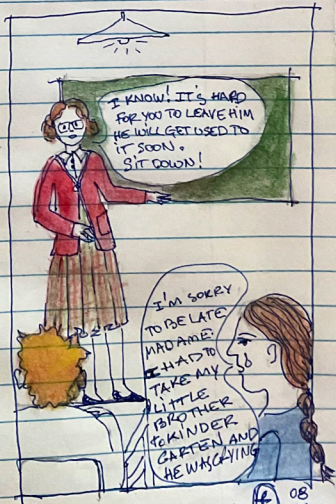 I KNOW! IT'S HARD
FOR YOU TO LEAVE HIM
HE WILL GET USED TO
IT SOON.
SIT DOWN!
I'M SORRY
TO BE LATE
MADAME.
I HAD TO
TAKE MY
LITTLE
BROTHER
to KINDER
GARTEN AND
HE WAS CRYING
08